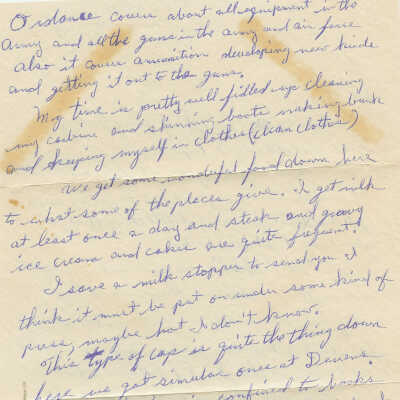 Ordance cover about all equipment in the
Army and all the guns in the army and air force
Also it cover amunition developing new kinds
and getting it out to the guns.
My time is pretty well filled up cleaning
my carbine and shinning boots making bunk
and keeping myself in clothes (clean clothes)
We get some wonderful food down here
to what some of the places give. I get milk
at least once a day and steak and gravy
ice cream and cakes are quite frequent.
I save a milk stopper to send you I
think it must be put on under some kind of
press, maybe hot I don't know.
This type of cap is quite the thing down
here we got simular ones at Devens
confined to